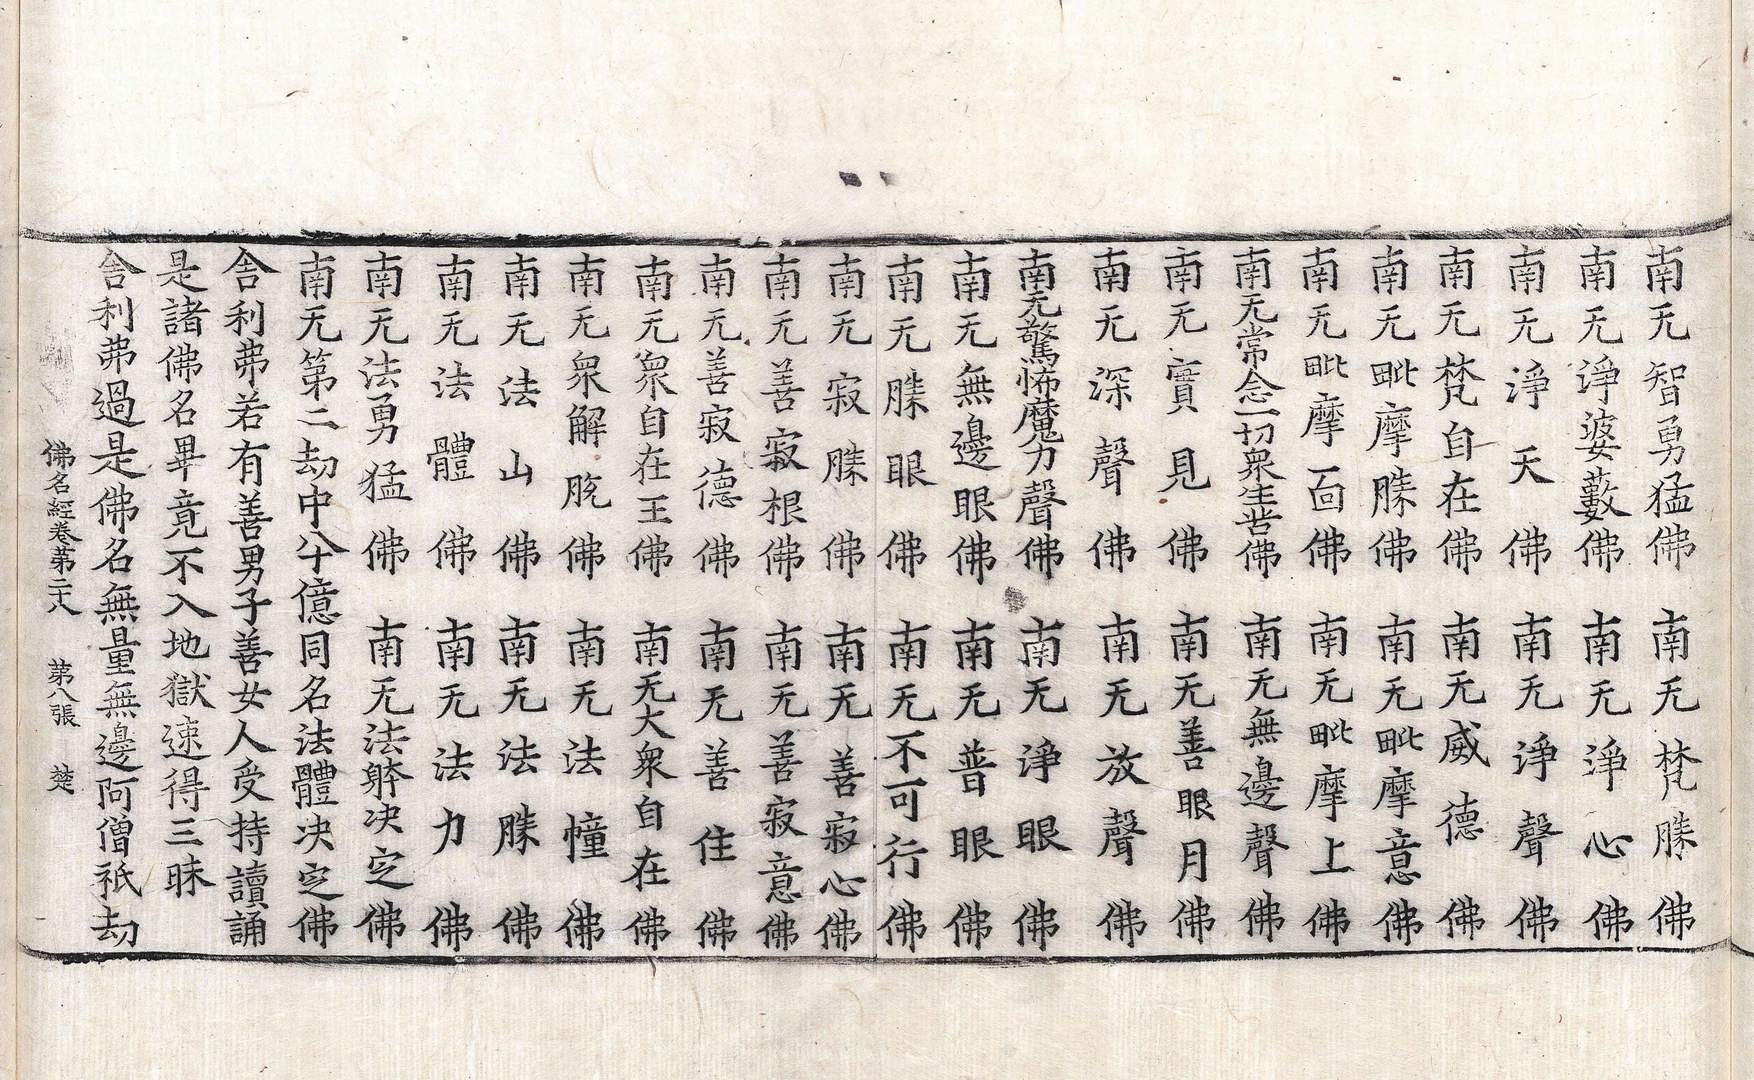 南无智勇猛佛　南无梵勝佛
南无淨婆藪佛　南无淨心佛
南无淨天佛　南无淨聲佛
南无梵自在佛　南无威德佛
南无毗摩勝佛　南无毗摩意佛
南无毗摩面佛　南无毗摩上佛
南无常念一切衆生苦佛　南无無邊聲佛
南无實見佛　南无善眼月佛
南无深聲佛　南无放聲佛
南无驚怖魔力聲佛　南无淨眼佛
南无無邊眼佛　南无普眼佛
南无勝眼佛　南无不可行佛
南无寂勝佛　南无善寂心佛
南无善寂根佛　南无善寂意佛
南无善寂德佛　南无善住佛
南无衆自在王佛　南无大衆自在佛
南无衆解脫佛　南无法幢佛
南无法山佛　南无法勝佛
南无法體佛　南无法力佛
南无法勇猛佛　南无法躰决定佛
南无第二劫中八十億同名法體决定佛
舍利弗若有善男子善女人受持讀誦
是諸佛名畢竟不入地獄速得三昧
舍利弗過是佛名無量無邊阿僧祇劫
佛名經卷第二十八　第八張　楚